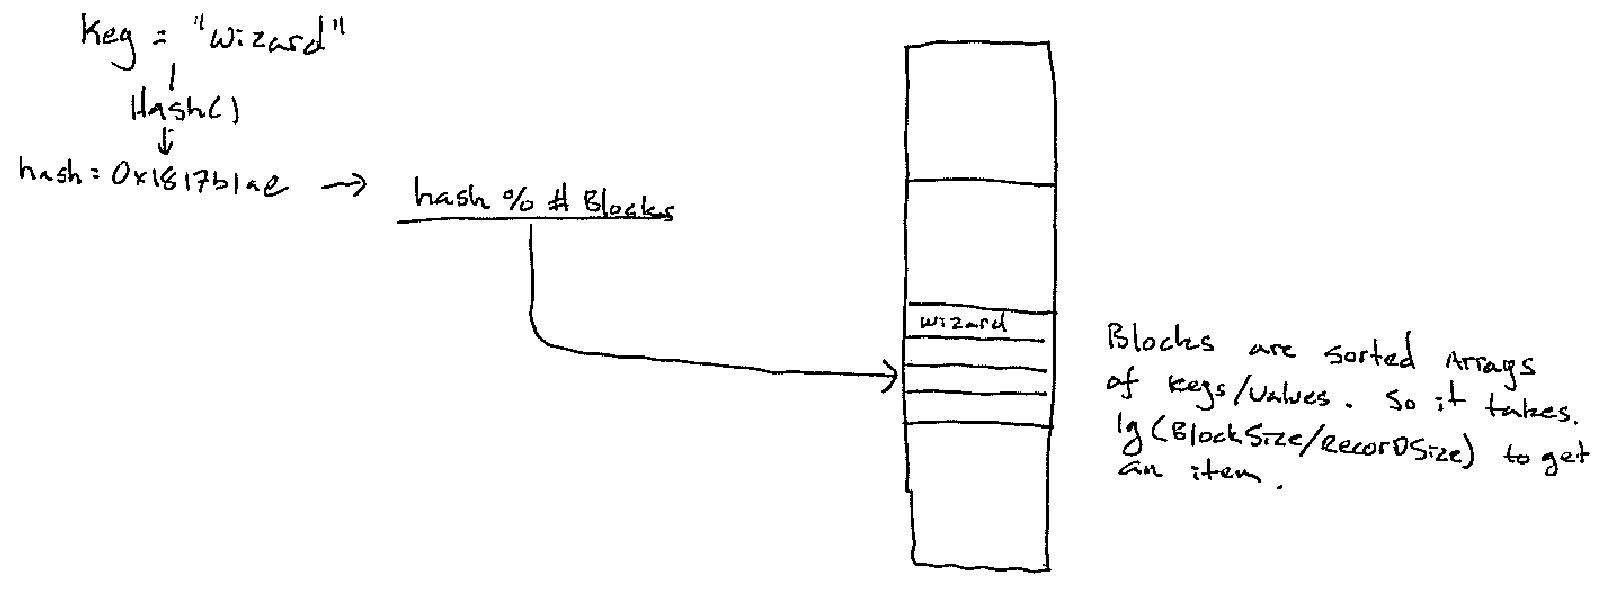 Key = "Wizard"
Hash()
hash = 0x1817b1ae
hash % # Blocks
wizard
Blocks are sorted Arrays
of keys/values. So it takes.
lg(BlockSize/RecordSize) to get
an item.